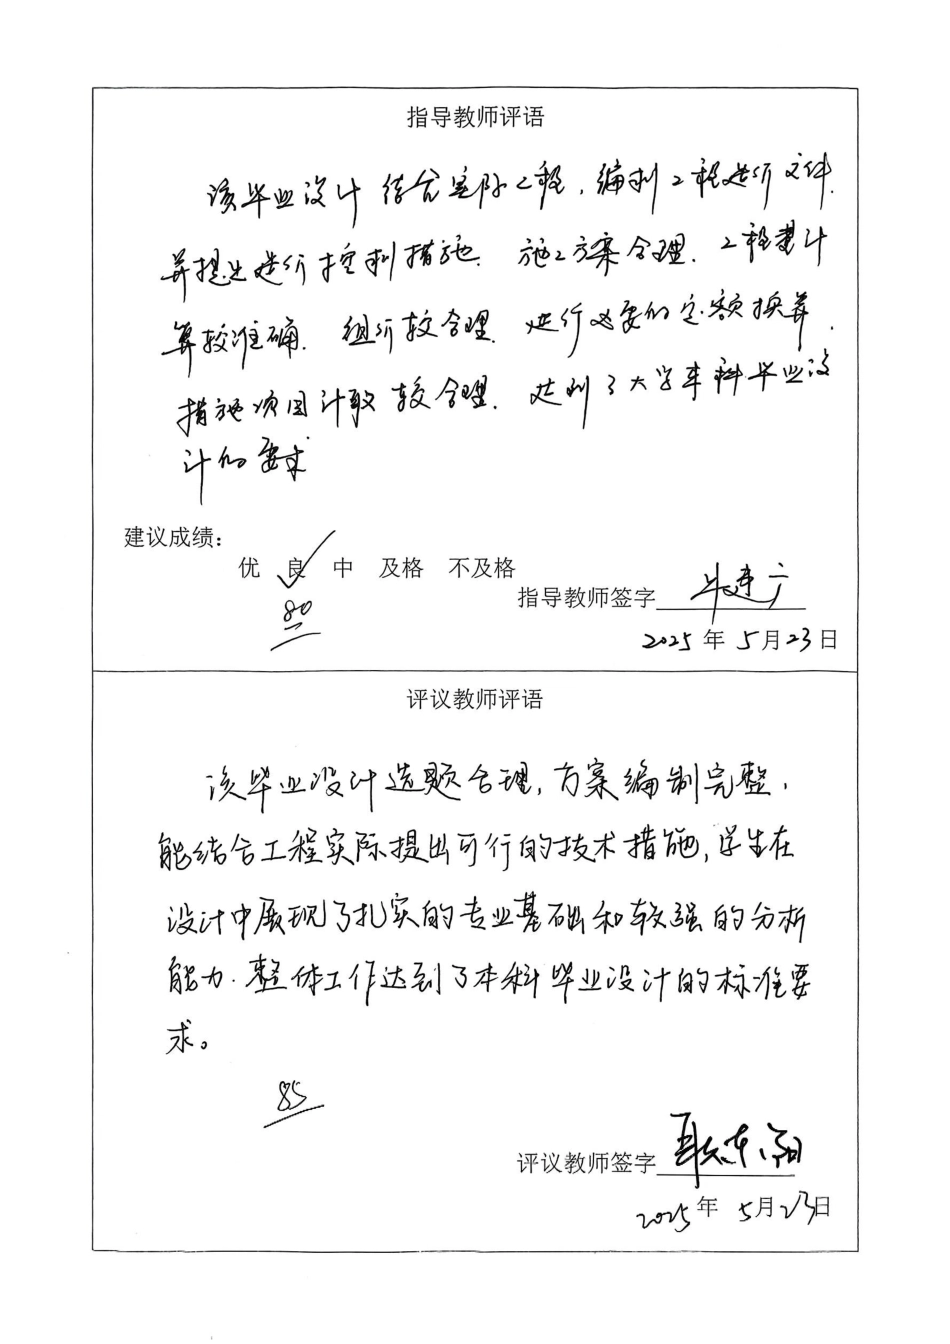 指导教师评语
该毕业设计结合实际工程,编制工程造价文件,
并提出造价控制措施.施工方案合理.工程量计
算较准确.组价较合理.进行必要的定额换算.
措施项目计取较合理.达到了大学本科毕业设
计的要求
建议成绩:
优 良 中 及格 不及格
80
指导教师签字
2025年5月23日
评议教师评语
该毕业设计选题合理,方案编制完整,
能结合工程实际提出可行的技术措施,学生在
设计中展现了扎实的专业基础和较强的分析
能力.整体工作达到了本科毕业设计的标准要
求。
85
评议教师签字
2025年5月23日